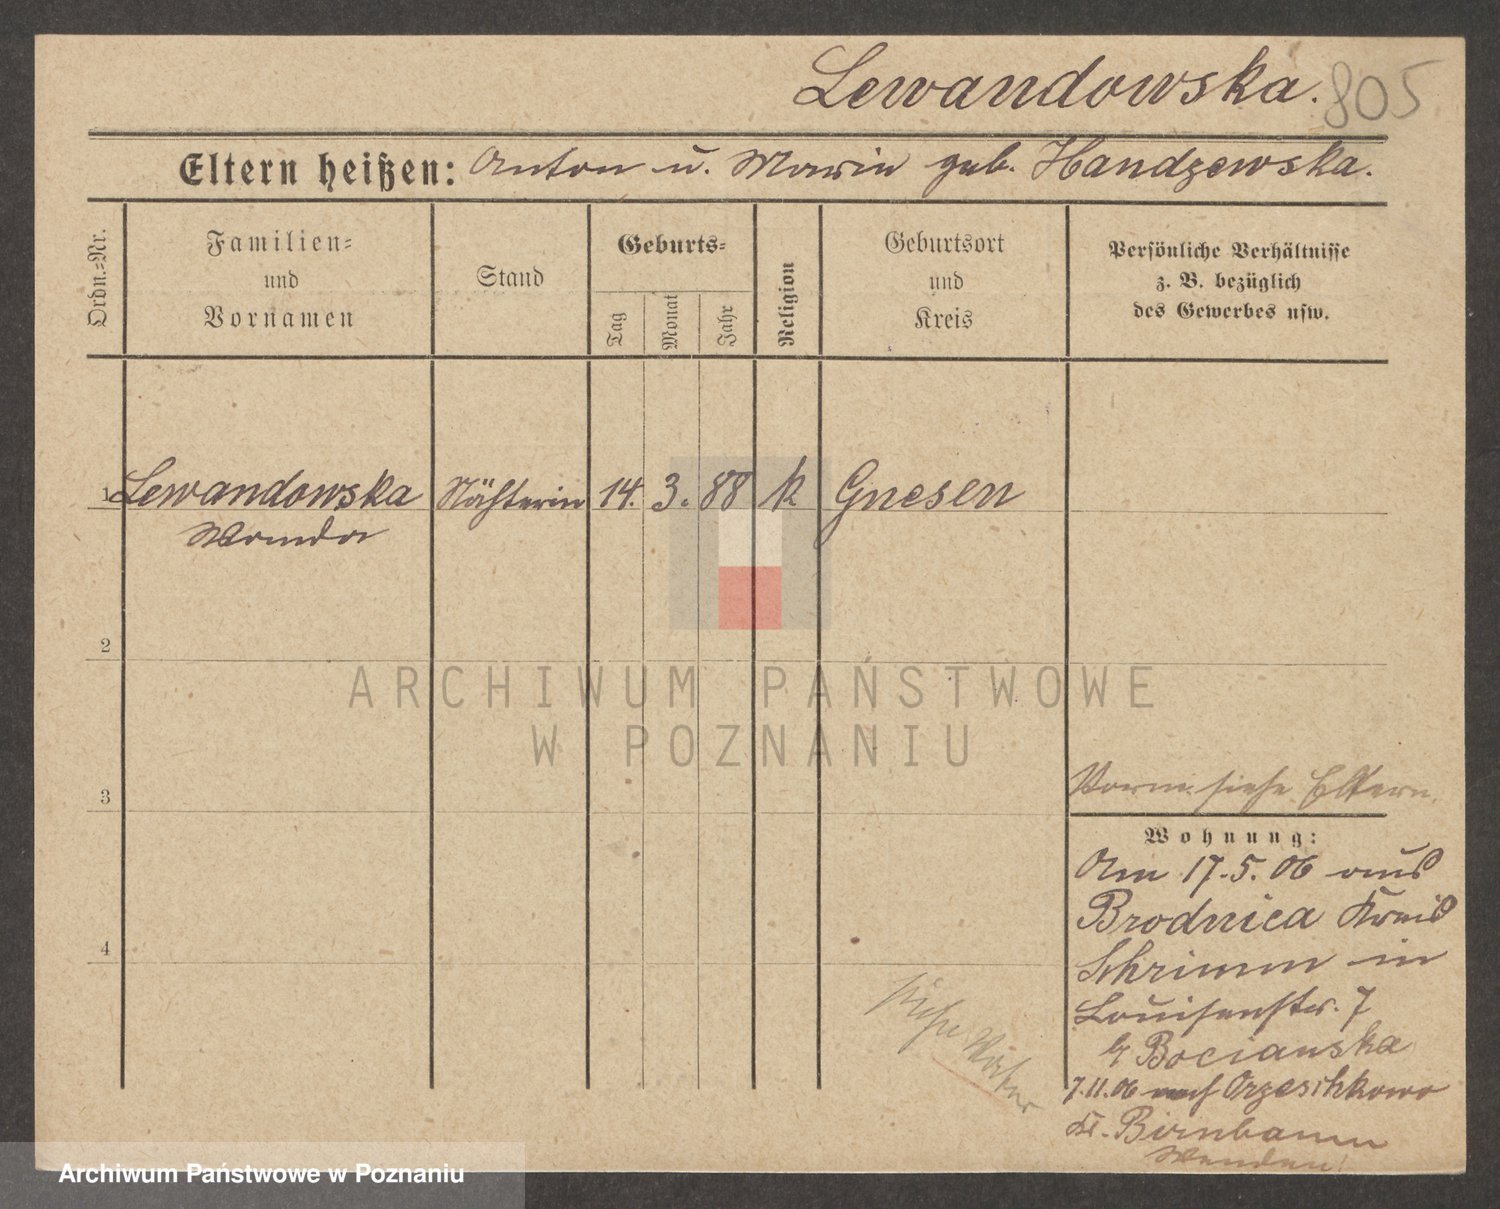 Lewandowska. 805
Eltern heißen: Anton u. Marie geb. Handzewska.
Ordn.=Nr.
Familien=
und
Vornamen
Stand
Geburts=
Tag
Monat
Jahr
Religion
Geburtsort
und
Kreis
Persönliche Verhältnisse
z. B. bezüglich
des Gewerbes usw.
1 Lewandowska Nähterin 14. 3. 88 k Gnesen
Wanda
2
ARCHIWUM PAŃSTWOWE
W POZNANIU
3
Vorm. siehe Eltern.
Wohnung:
Am 17.5.06 aus
Brodnica Kreis
4
Schrimm in
Louisenstr. 7
siehe
b/ Bocianska
7.11.06 nach Orzeschkowo
Kr. Birnbaum
Archiwum Państwowe w Poznaniu